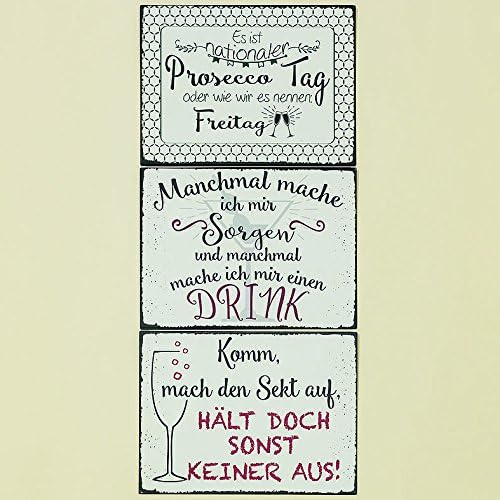 Es ist
nationaler
Prosecco Tag
oder wie wir es nennen:
Freitag
Manchmal mache
ich mir
Sorgen
und manchmal
mache ich mir einen
DRINK
Komm,
mach den Sekt auf,
HÄLT DOCH
SONST
KEINER AUS!